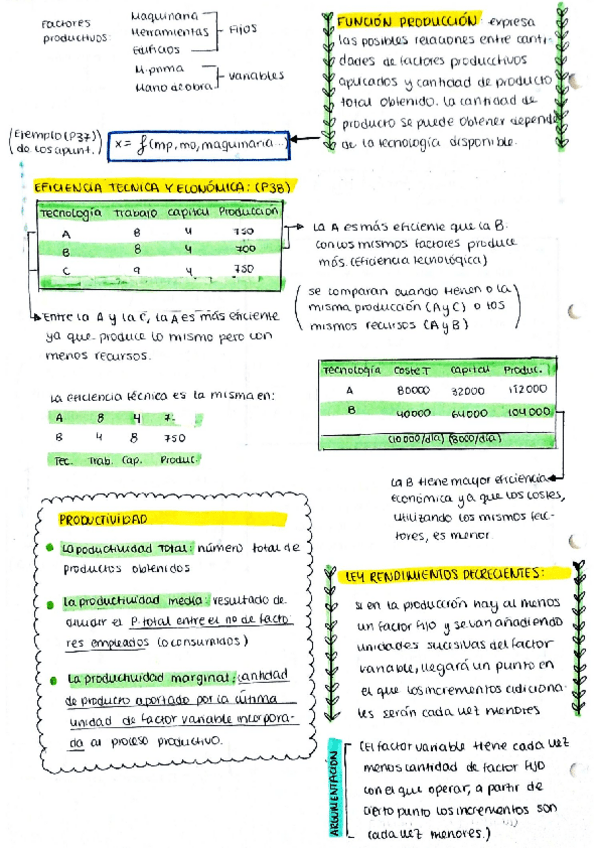 Factores
productivos:
Maquinaria
Herramientas
Edificios
Fijos
M.prima
Mano de obra
variables
FUNCIÓN PRODUCCIÓN: expresa
las posibles relaciones entre canti-
dades de factores producctivos
aplicados y cantidad de producto
total obtenido. La cantidad de
producto se puede obtener depende
de la tecnología disponible.
(Ejemplo (P37)
de los apunt.)
x = f(mp, mo, maquinaria...)
EFICIENCIA TECNICA Y ECONÓMICA: (P38)
Tecnología Trabajo Capital Producción
A 8 4 750
B 8 4 700
C 9 4 750
La A es más eficiente que la B:
con los mismos factores produce
más. (Eficiencia tecnológica)
(se comparan cuando tienen o la
misma producción (A y C) o los
mismos recursos (A y B))
Entre la A y la C, la A es más eficiente
ya que produce lo mismo pero con
menos recursos.
Tecnología Coste T Capital Produc.
A 80000 32000 112000
B 40000 64000 104000
(10000/día) (8000/día)
La eficiencia técnica es la misma en:
A 8 4 7-
B 4 8 750
Tec. Trab. Cap. Produc.
La B tiene mayor eficiencia
económica ya que los costes,
utilizando los mismos fac-
tores, es menor.
PRODUCTIVIDAD
La poductividad Total: número total de
productos obtenidos
La productividad media: resultado de
dividir el P. total entre el no de facto
res empleados (o consumidos)
La productividad marginal: cantidad
de producto aportado por la última
unidad de factor variable incorpora-
da al proceso productivo.
LEY RENDIMIENTOS DECRECIENTES:
si en la producción hay al menos
un factor fijo y se van añadiendo
unidades sucisivas del factor
variable, llegará un punto en
el que los incrementos adiciona-
les serán cada vez menores
ARGUMENTACIÓN
(El factor variable tiene cada vez
menos cantidad de factor fijo
con el que operar, a partir de
cierto punto los incrementos son
cada vez menores.)